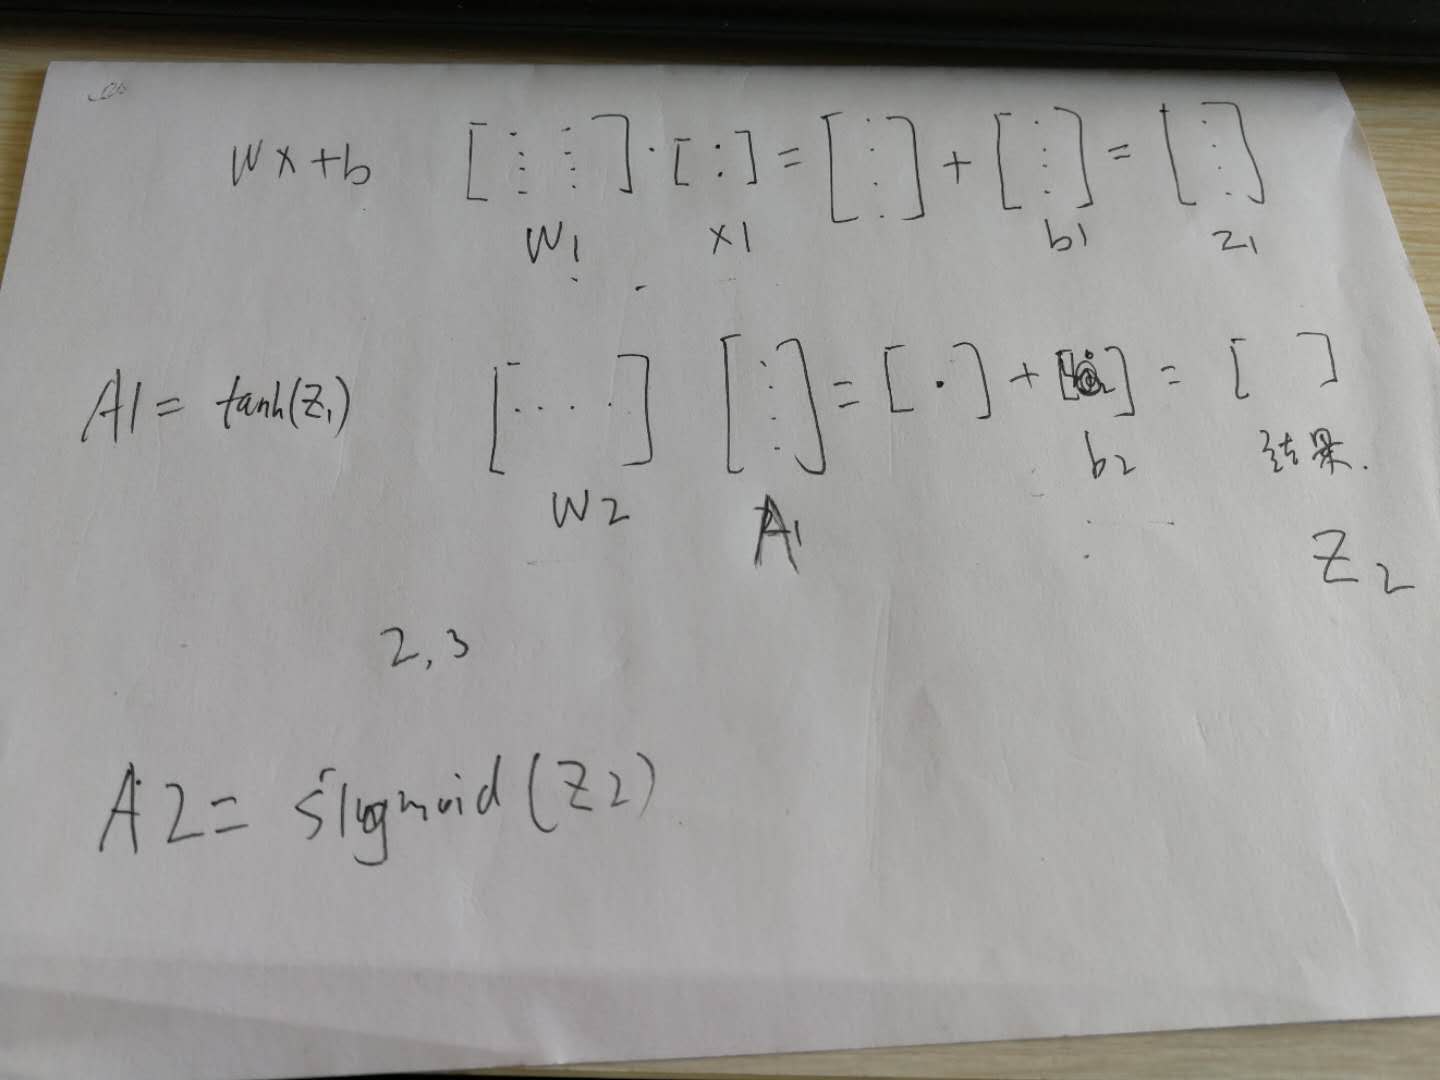 Wx+b [⋮ ⋮]·[:]=[⋮]+[⋮]=[⋮]
W1 x1 b1 z1
A1= tanh(Z1) [....] [⋮]=[·]+[]=[ ]
W2 A1 b2 结果.
Z2
2,3
A2= sigmoid(Z2)